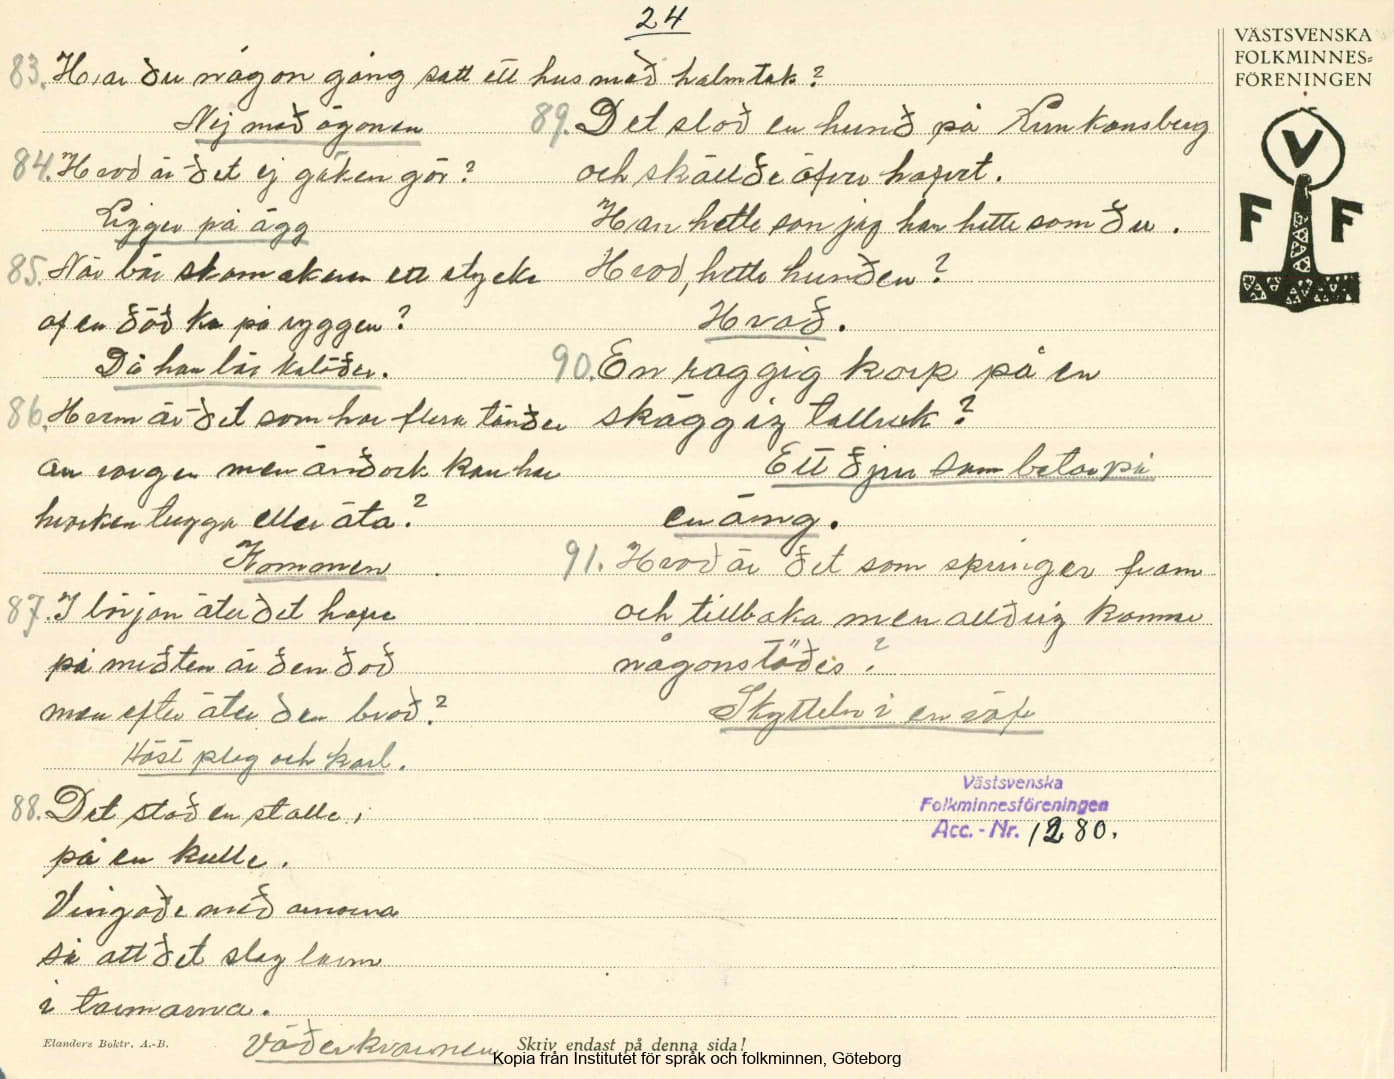 24
83. Har du någon gång satt ett hus med halmtak?
Nej med ögonen
84. Hvad är det ej göken gör?
Ligger på ägg
85. När bär skomakaren ett stycke
af en död ko på ryggen?
Då han bär kalfläder.
86. Hvem är det som har flera tänder
än vargen men ändock kan han
hvarken tugga eller äta?
Kammen
87. I början äter det hafre
på midten är den död
men efter äter den bröd?
Häst plog och karl.
88. Det stod en stalle,
på en kulle.
Vingade med armarna
så att det slog larm
i tarmarna.
Väderkvarnen
89. Det stod en hund på Kinkansberg
och skällde öfver hafvet.
Han hette som jag han hette som du.
Hvad, hette hunden?
Hvad.
90. En raggig korp på en
skäggig tallrik?
Ett djur som betar på
en äng.
91. Hvad är det som springer fram
och tillbaka men aldrig kommer
någonstädes?
Skytteln i en väf
Västsvenska
Folkminnesföreningen
Acc. - Nr. 1280.
VÄSTSVENSKA
FOLKMINNES=
FÖRENINGEN
V
F F
Elanders Boktr. A.-B.
Skriv endast på denna sida!
Kopia från Institutet för språk och folkminnen, Göteborg